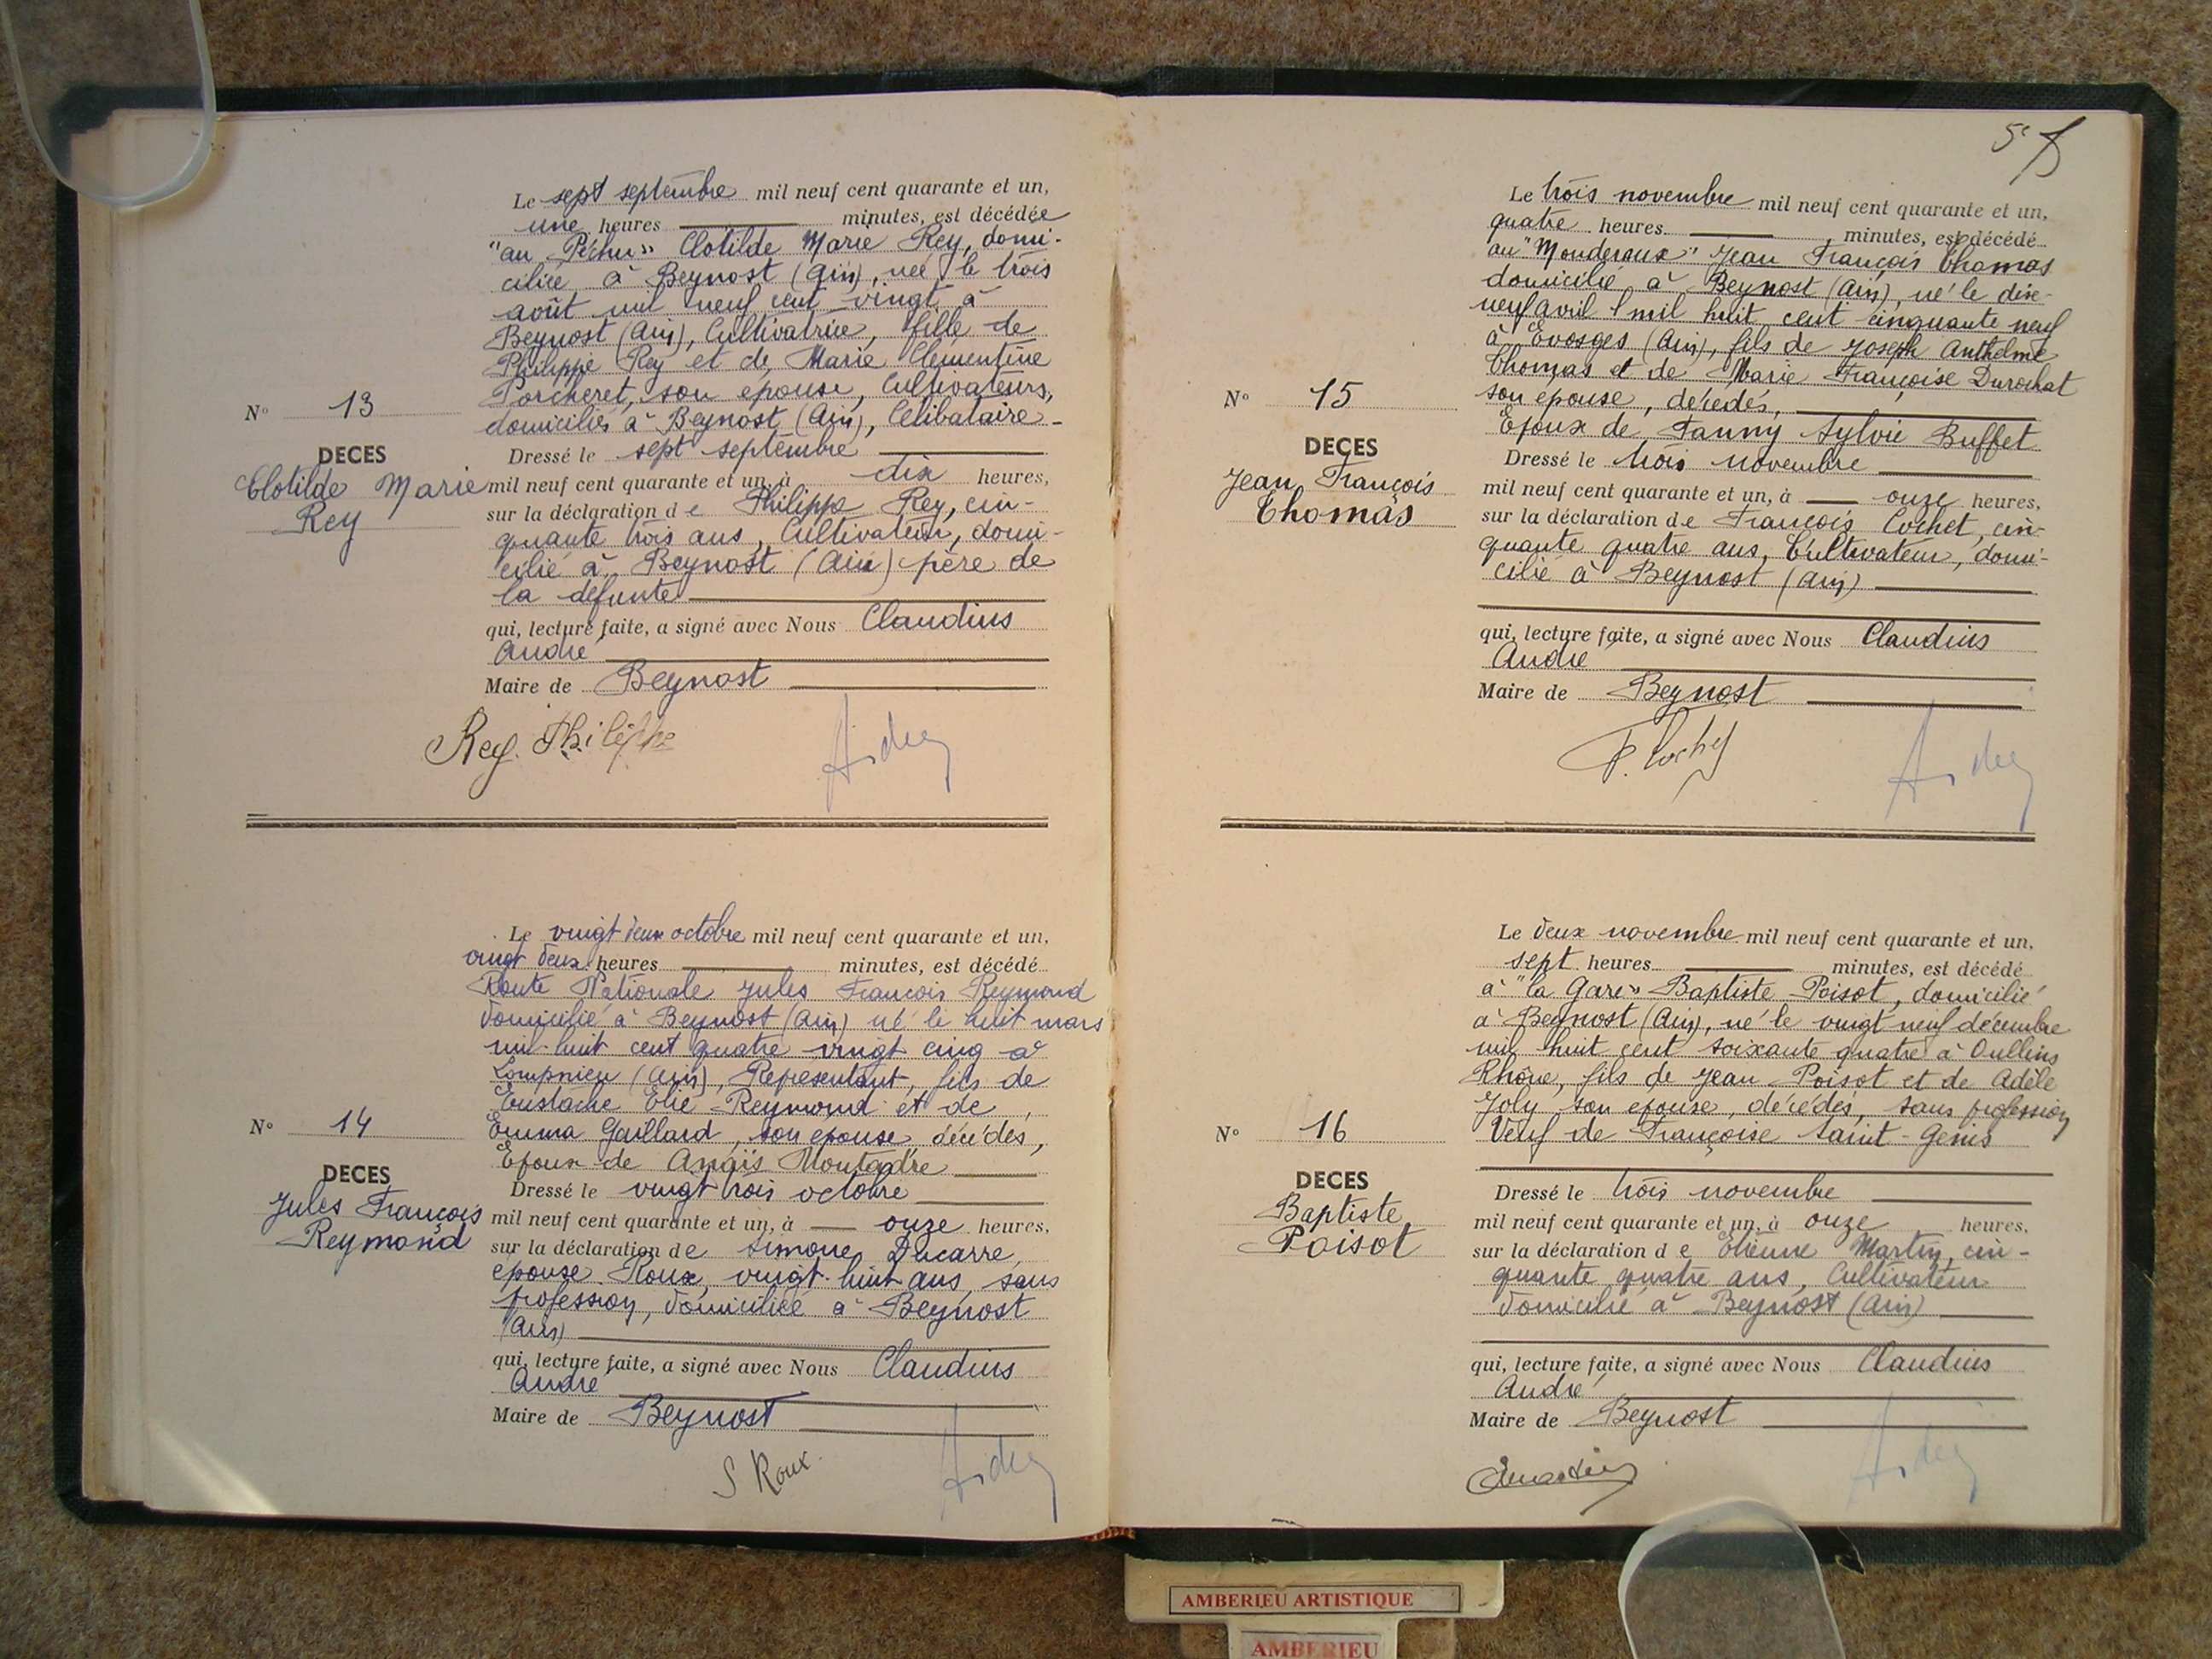 Le sept septembre mil neuf cent quarante et un,
une heures minutes, est décédée
"au Péchu" Clotilde Marie Rey, domi-
ciliée à Beynost (Ain), née le trois
août mil neuf cent vingt à
Beynost (Ain), Cultivatrice, fille de
Philippe Rey et de Marie Clémentine
Porcheret, son epouse, Cultivateurs,
domiciliés à Beynost (Ain), Célibataire
N° 13
DECES
Clotilde Marie
Rey
Dressé le sept septembre
mil neuf cent quarante et un, à dix heures,
sur la déclaration de Philippe Rey, cin-
quante trois ans, Cultivateur, domi-
cilié à Beynost (Ain) père de
la défunte
qui, lecture faite, a signé avec Nous Claudius
André
Maire de Beynost
Rey. Philippe
Le vingt deux octobre mil neuf cent quarante et un,
vingt deux heures minutes, est décédé
Route Nationale Jules François Reymond
domicilié à Beynost (Ain) né le huit mars
mil huit cent quatre vingt cinq à
Lompnieu (Ain), Représentant, fils de
Eustache Elie Reymond et de
Emma Gaillard, son epouse décédés,
Epoux de Anaïs Montagdre
N° 14
DECES
Jules François
Reymond
Dressé le vingt trois octobre
mil neuf cent quarante et un, à onze heures,
sur la déclaration de Simone Ducarre,
épouse Roux, vingt-huit ans, sans
profession, domiciliée à Beynost
(Ain)
qui, lecture faite, a signé avec Nous Claudius
André
Maire de Beynost
S Roux
5
Le trois novembre mil neuf cent quarante et un,
quatre heures minutes, est décédé
au "Monderoux" Jean François Thomas
domicilié à Beynost (Ain), né le dix-
neuf avril mil huit cent cinquante neuf
à Evosges (Ain), fils de Joseph Anthelme
Thomas et de Marie Françoise Durochat
son epouse, décédés,
Epoux de Fanny Sylvie Buffet
N° 15
DECES
Jean François
Thomas
Dressé le trois novembre
mil neuf cent quarante et un, à onze heures,
sur la déclaration de François Cochet, cin-
quante quatre ans, Cultivateur, domi-
cilié à Beynost (Ain)
qui, lecture faite, a signé avec Nous Claudius
André
Maire de Beynost
Le deux novembre mil neuf cent quarante et un,
sept heures minutes, est décédé
à "la Gare" Baptiste Poisot, domicilié
à Beynost (Ain), né le vingt neuf décembre
mil huit cent soixante quatre à Oullins
Rhône, fils de Jean Poisot et de Adèle
Joly son epouse, décédés, sans profession
Veuf de Françoise Saint-Genis
N° 16
DECES
Baptiste
Poisot
Dressé le trois novembre
mil neuf cent quarante et un, à onze heures,
sur la déclaration de Etienne Martin, cin-
quante quatre ans, Cultivateur
domicilié à Beynost (Ain)
qui, lecture faite, a signé avec Nous Claudius
André
Maire de Beynost
AMBERIEU ARTISTIQUE
AMBERIEU